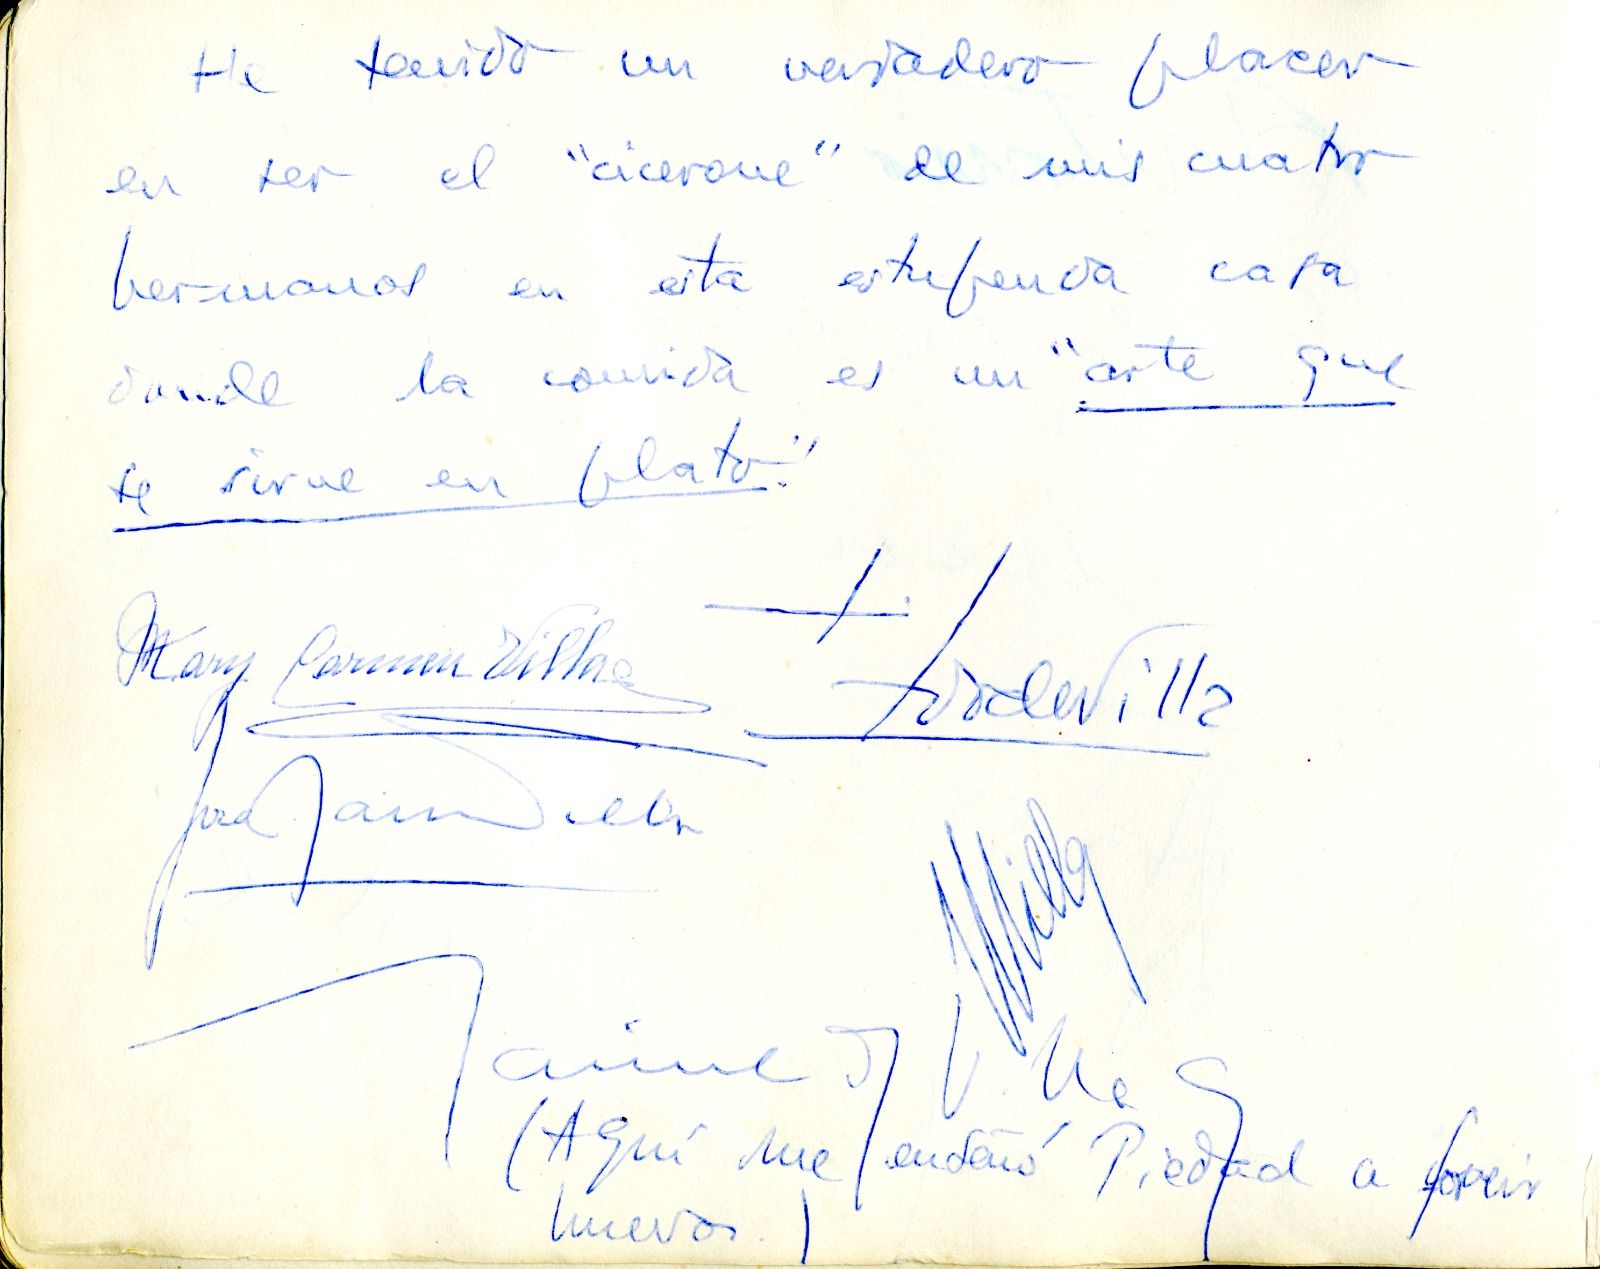 He tenido un verdadero placer
en ser el "cicerone" de mis cuatro
hermanos en esta estupenda casa
donde la comida es un "arte que
se sirve en plato."
Mary Carmen Villa
Villa
José Jaime Villa
Villa
Jaime J Villa G
(Aquí me enseñó Piedad a freir
huevos.)